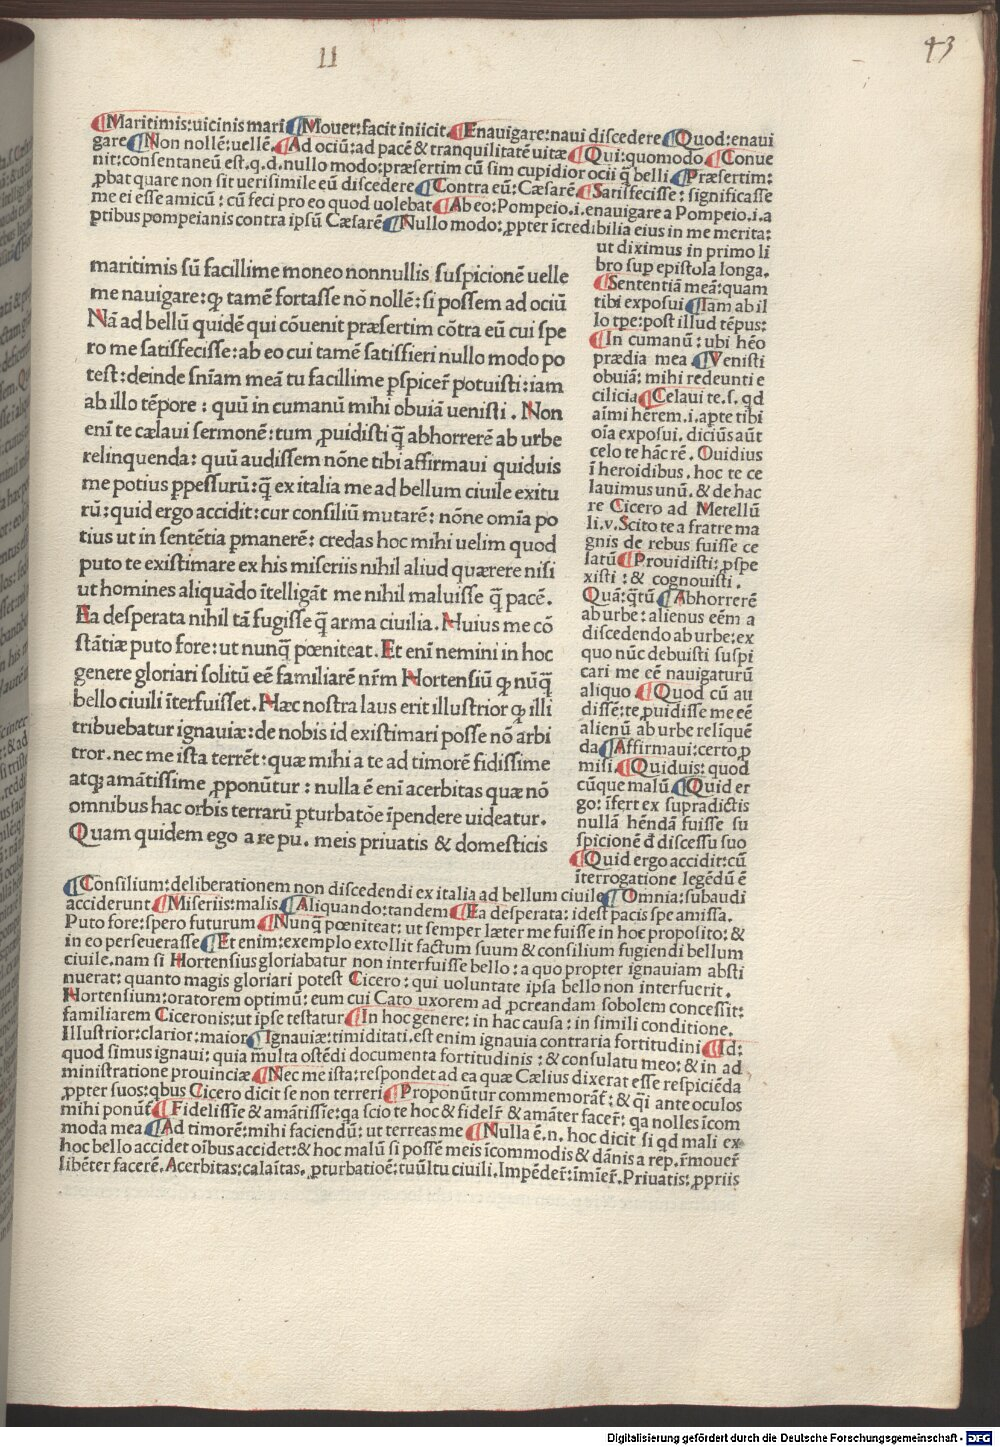 II
43
¶Maritimis:uicinis mari¶Mouet:facit iniicit.¶Enauigare:naui discedere¶Quod:enaui
gare¶Non nollẽ:uellẽ.¶Ad ociũ:ad pacẽ & tranquilitatẽ uitæ¶Qui:quomodo¶Conue
nit:consentaneũ est.q.d.nullo modo:præsertim cũ sim cupidior ocii q̃ belli¶Præsertim:
ꝓbat quare non sit uerisimile eũ discedere¶Contra eũ:Cæsarẽ¶Satisfecisse:significasse
me ei esse amicũ:cũ feci pro eo quod uolebat¶Ab eo:Pompeio.i.enauigare a Pompeio.i.a
ꝑtibus pompeianis contra ipsũ Cæsarẽ¶Nullo modo:ꝓpter ĩcredibilia eius in me merita:
ut diximus in primo li
bro sup epistola longa.
¶Sententiã meã:quam
tibi exposui¶Iam ab il
lo tꝑe:post illud tẽpus:
¶In cumanũ:ubi hẽo
prædia mea¶Venisti
obuiã:mihi redeunti e
cilicia¶Celaui te.s.qd
aĩmi herem.i.apte tibi
oĩa exposui.dicius aũt
celo te hãc rẽ.Ouidius
ĩ heroidibus.hoc te ce
lauimus unũ.& de hac
re Cicero ad Metellũ
li.v.Scito te a fratre ma
gnis de rebus fuisse ce
latũ¶Prouidisti:ꝑspe
xisti:& cognouisti.
Quã:q̃tũ¶Abhorrerẽ
ab urbe:alienus eẽm a
discedendo ab urbe:ex
quo nũc debuisti suspi
cari me cẽ nauigaturũ
aliquo¶Quod cũ au
dissẽ:te ꝓuidisse me eẽ
alienũ ab urbe reliquẽ
da¶Affirmaui:certo ꝓ
misi.¶Quiduis:quod
cũque malũ¶Quid er
go:ĩfert ex supradictis
nullã hẽndã fuisse su
spicionẽ đ discessu suo
¶Quid ergo accidit:cũ
ĩterrogatione legẽdũ ẽ
maritimis sũ facillime moneo nonnullis suspicionẽ uelle
me nauigare:ꝙ tamẽ fortasse nõ nollẽ:si possem ad ociũ
Nã ad bellũ quidẽ qui cõuenit præsertim cõtra eũ cui spe
ro me satisfecisse:ab eo cui tamẽ satisfieri nullo modo po
test:deinde sñiam meã tu facillime ꝑspicer̃ potuisti:iam
ab illo tẽpore:quũ in cumanũ mihi obuiã uenisti.Non
enĩ te cælaui sermonẽ:tum ꝓuidisti q̃ abhorrerẽ ab urbe
relinquenda:quũ audissem nõne tibi affirmaui quiduis
me potius ꝑpessurũ:q̃ ex italia me ad bellum ciuile exitu
rũ:quid ergo accidit:cur consiliũ mutarẽ:nõne omĩa po
tius ut in sentẽtia ꝑmanerẽ:credas hoc mihi uelim quod
puto te existimare ex his miseriis nihil aliud quærere nisi
ut homines aliquãdo ĩtelligãt me nihil maluisse q̃ pacẽ.
Ea desperata nihil tã fugisse q̃ arma ciuilia.Huius me cõ
stãtiæ puto fore:ut nunq̃ pœniteat.Et enĩ nemini in hoc
genere gloriari solitũ eẽ familiarẽ nr̃m Hortensiũ ꝙ nũq̃
bello ciuili ĩterfuisset.Hæc nostra laus erit illustrior ꝙ illi
tribuebatur ignauiæ:de nobis id existimari posse nõ arbi
tror.nec me ista terrẽt:quæ mihi a te ad timorẽ fidissime
atqꝫ amãtissime ꝓponũtur:nulla ẽ enĩ acerbitas quæ nõ
omnibus hac orbis terrarũ ꝑturbatõe ĩpendere uideatur.
Quam quidem ego a re pu. meis priuatis & domesticis
¶Consilium:deliberationem non discedendi ex italia ad bellum ciuile¶Omnia:subaudi
acciderunt¶Miseriis:malis¶Aliquando:tandem¶Ea desperata:idest pacis spe amissa.
Puto fore:spero futurum¶Nunq̃ pœniteat:ut semper læter me fuisse in hoc proposito:&
in eo perseuerasse¶Et enim:exemplo extollit factum suum & consilium fugiendi bellum
ciuile.nam si Hortensius gloriabatur non interfuisse bello:a quo propter ignauiam absti
nuerat:quanto magis gloriari potest Cicero:qui uoluntate ipsa bello non interfuerit.
Hortensium:oratorem optimũ:eum cui Cato uxorem ad ꝓcreandam sobolem concessit:
familiarem Ciceronis:ut ipse testatur¶In hoc genere:in hac causa:in simili conditione.
Illustrior:clarior:maior¶Ignauiæ:timiditati.est enim ignauia contraria fortitudini¶Id:
quod simus ignaui:quia multa ostẽdi documenta fortitudinis:& consulatu meo:& in ad
ministratione prouinciæ¶Nec me ista:respondet ad ea quæ Cælius dixerat esse respiciẽda
ꝓpter suos:qbus Cicero dicit se non terreri¶Proponũtur commemorãt̃:& q̃i ante oculos
mihi ponũt̃¶Fidelissĩe & amãtissĩe:qa scio te hoc & fidelr̃ & amãter facer̃:qa nolles ĩcom
moda mea¶Ad timorẽ:mihi faciendũ:ut terreas me¶Nulla ẽ.n.hoc dicit si qd mali ex
hoc bello accidet oĩbus accidet:& hoc malũ si possẽ meis ĩcommodis & dãnis a rep.r̃mouer̃
libẽter facerẽ.Acerbitas:calaĩtas.ꝑturbatioẽ:tuũltu ciuili.Impẽder̃:ĩmĩer̃.Priuatis:ꝓpriis
Digitalisierung gefördert durch die Deutsche Forschungsgemeinschaft - DFG